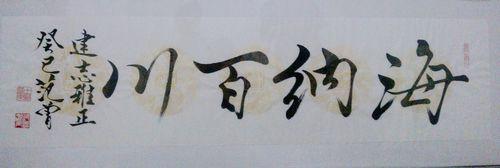 海纳百川
建志雅正
癸巳范曾